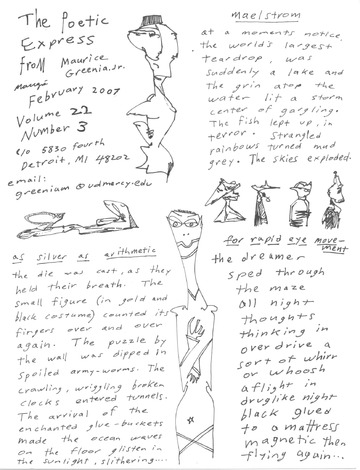 The Poetic
Express
from Maurice
Greenia, Jr.
February 2007
Volume 22
Number 3
c/o 5830 Fourth
Detroit, MI 48202
email:
greeniam@udmercy.edu
maelstrom
at a moments notice
the world's largest
teardrop, was
suddenly a lake and
the grin atop the
water lit a storm
center of gargling.
The fish leapt up, in
terror. Strangled
rainbows turned mud
grey. The skies exploded.
as silver as arithmetic
the die was cast, as they
held their breath. The
small figure (in gold and
black costume) counted its
fingers over and over
again. The puzzle by
the wall was dipped in
spoiled army-worms. The
crawling, wriggling broken
clocks entered tunnels.
The arrival of the
enchanted glue-buckets
made the ocean waves
on the floor glisten in
the sunlight, slithering....
for rapid eye move-
ment
the dreamer
sped through
the maze
all night
thoughts
thinking in
overdrive a
sort of whirr
or whoosh
aflight in
druglike night
black glued
to a mattress
magnetic then
flying again...